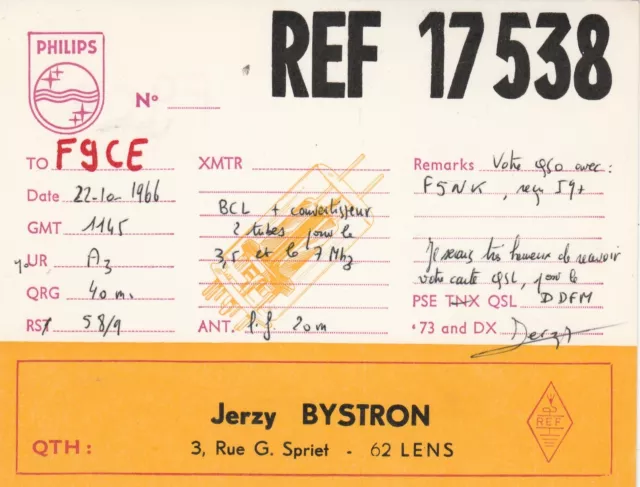 PHILIPS
REF 17538
N°
TO F9CE
Date 22-10-1966
GMT 1145
UR A3
QRG 40 m.
RST 58/9
XMTR
BCL + convertisseur
2 tubes pour le
3,5 et le 7 Mhz
ANT. 20 m
Remarks Votre QSO avec :
F5NK, reçu 59+
Je serais très heureux de recevoir
votre carte QSL, pour le
PSE TNX QSL DDFM
73 and DX Jerzy
Jerzy BYSTRON
QTH : 3, Rue G. Spriet - 62 LENS
REF